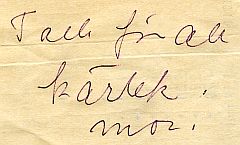 Tack för all
kärlek.
mor.